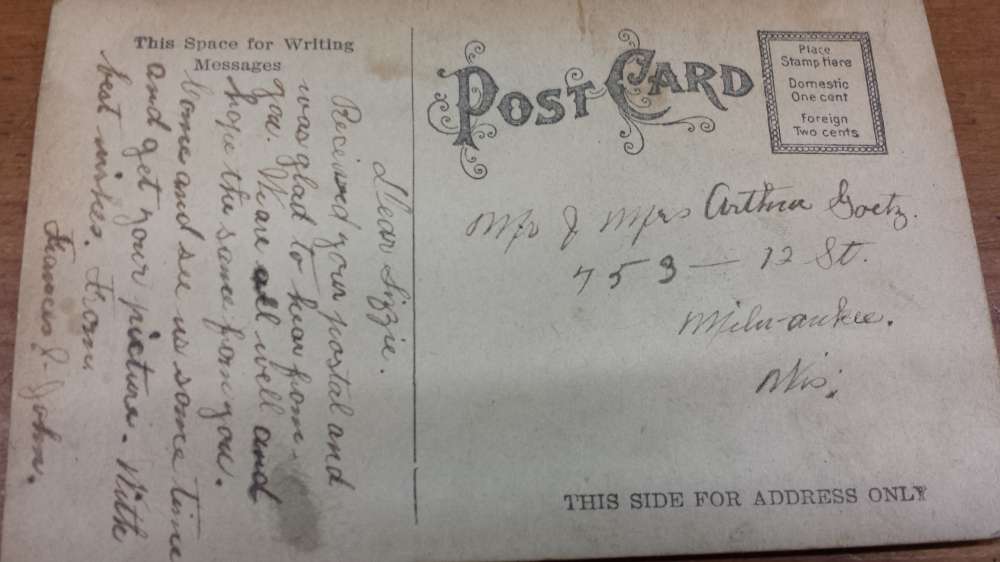 This Space for Writing
Messages
Dear Lizzie.
Received your postal and
was glad to hear from
you. We are all well and
hope the same from you.
Come and see us some time
and get your picture. With
best wishes. From
Frances & John.
POST CARD
Place
Stamp Here
Domestic
One cent
Foreign
Two cents
Mr & Mrs Arthur Goetz.
753 — 12 St.
Milwaukee.
Wis.
THIS SIDE FOR ADDRESS ONLY